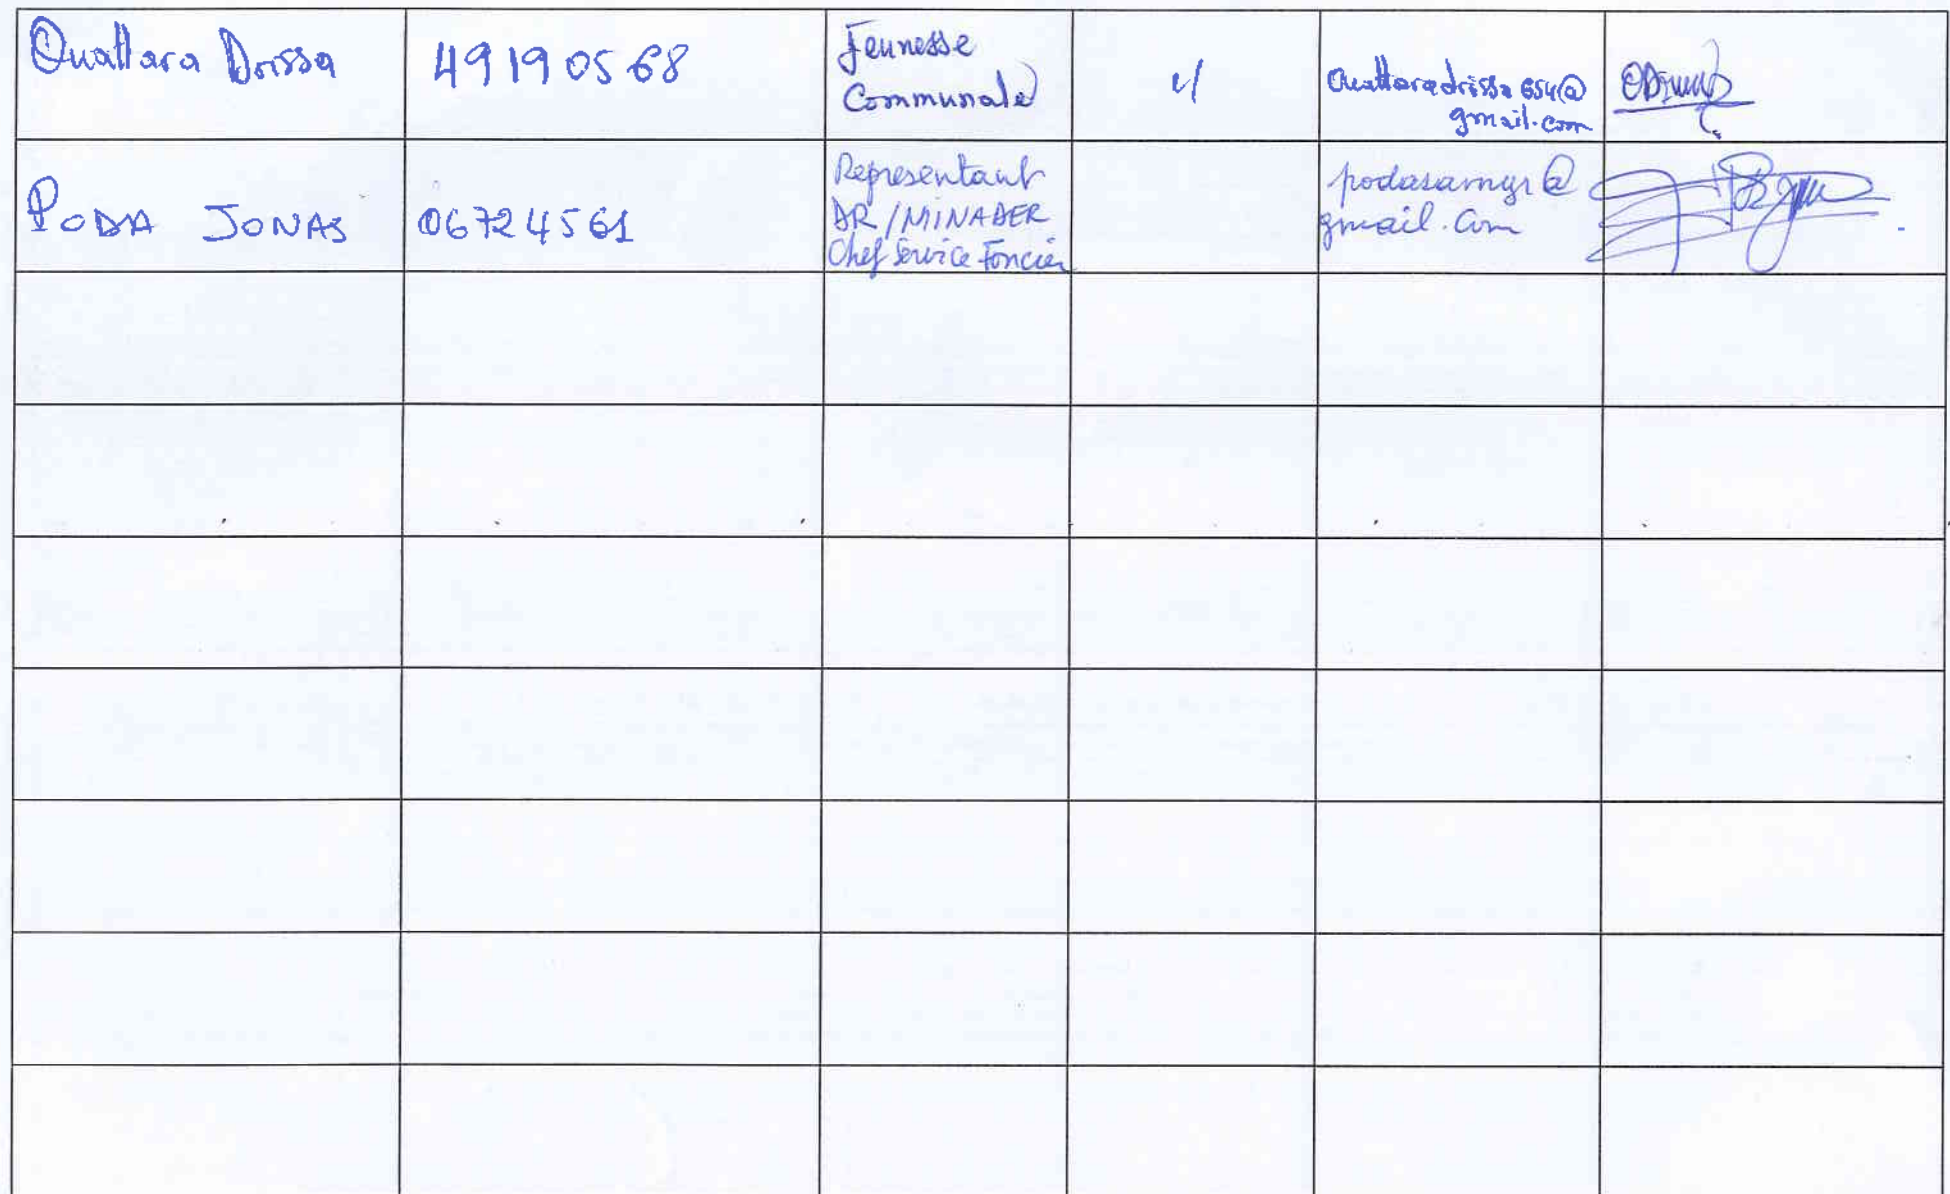 Ouattara Drissa
49190568
Jeunesse
Communale
Ouattaradrissa654@
gmail.com
PODA JONAS
06724561
Representant
DR/MINADER
Chef Service Foncier
podasamyr@
gmail.com